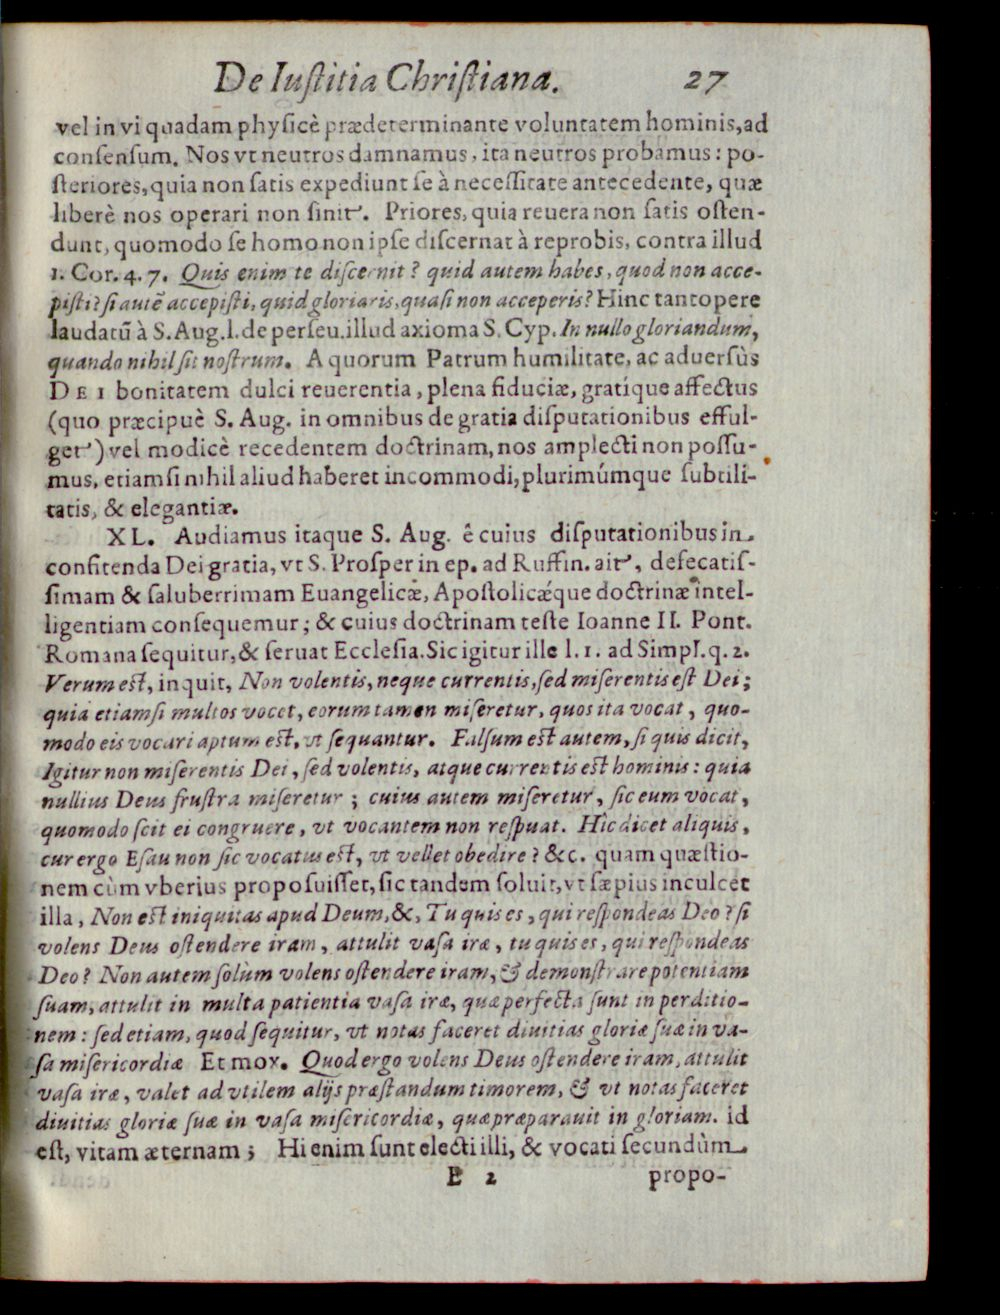 De Iuſtitia Chriſtiana. 27
vel in vi quadam phyſicè prædeterminante voluntatem hominis, ad
conſenſum. Nos vt neutros damnamus, ita neutros probamus: po-
ſteriores, quia non ſatis expediunt ſe à neceſſitate antecedente, quæ
liberè nos operari non ſinit. Priores, quia reuera non ſatis oſten-
dunt, quomodo ſe homo non ipſe diſcernat à reprobis, contra illud
1. Cor. 4. 7. Quis enim te diſcernit? quid autem habes, quod non acce-
piſti? ſi autē accepiſti, quid gloriaris, quaſi non acceperis? Hinc tantopere
laudatū à S. Aug. l. de perſeu. illud axioma S. Cyp. In nullo gloriandum,
quando nihil ſit noſtrum. A quorum Patrum humilitate, ac aduerſùs
DEI bonitatem dulci reuerentia, plena fiduciæ, gratique affectus
(quo præcipuè S. Aug. in omnibus de gratia diſputationibus efful-
get) vel modicè recedentem doctrinam, nos amplecti non poſſu-
mus, etiamſi nihil aliud haberet incommodi, plurimúmque ſubtili-
tatis, & elegantiæ.
XL. Audiamus itaque S. Aug. ê cuius diſputationibus in
confitenda Dei gratia, vt S. Proſper in ep. ad Ruffin. ait, defecatiſ-
ſimam & ſaluberrimam Euangelicæ, Apoſtolicǽque doctrinæ intel-
ligentiam conſequemur; & cuius doctrinam teſte Ioanne II. Pont.
Romana ſequitur, & ſeruat Eccleſia. Sic igitur ille l. 1. ad Simpl. q. 2.
Verum eſt, inquit, Non volentis, neque currentis, ſed miſerentis eſt Dei;
quia etiamſi multos vocet, eorum tamen miſeretur, quos ita vocat, quo-
modo eis vocari aptum eſt, vt ſequantur. Falſum eſt autem, ſi quis dicit,
Igitur non miſerentis Dei, ſed volentis, atque currentis eſt hominis: quia
nullius Deus fruſtra miſeretur; cuius autem miſeretur, ſic eum vocat,
quomodo ſcit ei congruere, vt vocantem non reſpuat. Hîc dicet aliquis,
cur ergo Eſau non ſic vocatus eſt, vt vellet obedire? &c. quam quæſtio-
nem cùm vberius propoſuiſſet, ſic tandem ſoluit, vt ſæpius inculcet
illa, Non eſt iniquitas apud Deum, &, Tu quis es, qui reſpondeas Deo? ſi
volens Deus oſtendere iram, attulit vaſa iræ, tu quis es, qui reſpondeas
Deo? Non autem ſolùm volens oſtendere iram, & demonſtrare potentiam
ſuam, attulit in multa patientia vaſa iræ, quæ perfecta ſunt in perditio-
nem: ſed etiam, quod ſequitur, vt notas faceret diuitias gloriæ ſuæ in va-
ſa miſericordiæ Et mox. Quod ergo volens Deus oſtendere iram, attulit
vaſa iræ, valet ad vtilem alijs præſtandum timorem, & vt notas faceret
diuitias gloriæ ſuæ in vaſa miſericordiæ, quæ præparauit in gloriam. id
eſt, vitam æternam; Hi enim ſunt electi illi, & vocati ſecundùm
E 2 propo-